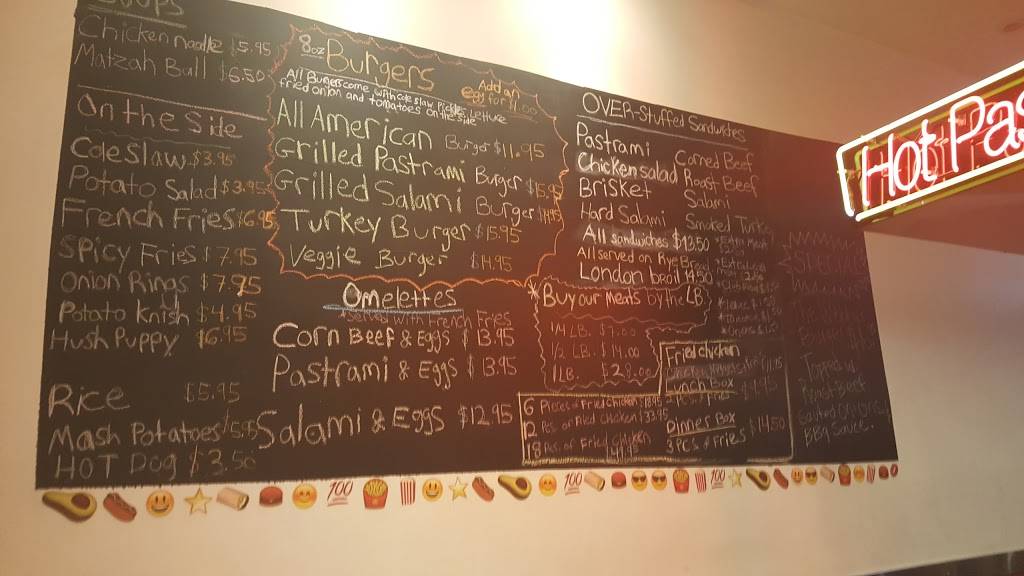 Soups
Chicken noodle $5.95
Matzah Ball $6.50
On the Side
Coleslaw $3.95
Potato Salad $3.95
French Fries $6.95
Spicy Fries $7.95
Onion Rings $7.95
Potato Knish $4.95
Hush Puppy $6.95
Rice $5.95
Mash Potatoes $5.95
HOT Dog $3.50
8oz Burgers
Add an egg for $1.00
All Burgers come with cole slaw, Pickles, Lettuce
fried onion and tomatoes on the side
All American Burger $11.95
Grilled Pastrami Burger $15.95
Grilled Salami Burger $14.95
Turkey Burger $15.95
Veggie Burger $14.95
Omelettes
with French Fries
Corn Beef & Eggs $13.95
Pastrami & Eggs $13.95
Salami & Eggs $12.95
OVER-Stuffed Sandwiches
Pastrami Corned Beef
Chicken salad Roast Beef
Brisket Salami
Hard Salami Smoked Turkey
All sandwiches $13.50
All served on Rye
London broil
*Buy our Meats by the LB
1/4 LB. $7.00
1/2 LB. $14.00
1 LB. $28.00
Fried chicken
Lunch Box
Dinner Box $14.50
Fries
6 Pieces of Fried Chicken
12 Pcs. of Fried Chicken
18 Pcs of Fried Chicken
Special
Topped w
Roast Beef
BBQ Sauce.
Hot Pas
100
100
100